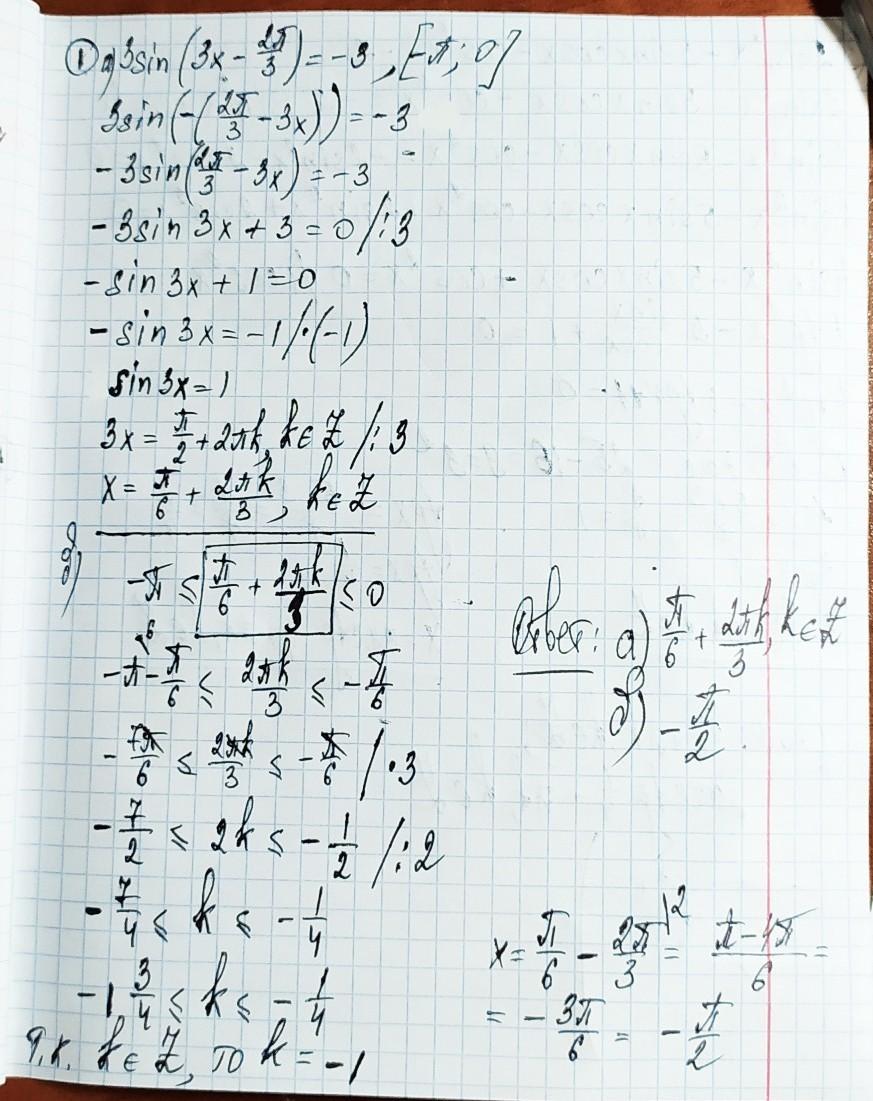 ① а) 3sin(3x - 2π/3) = -3, [-π; 0]
3sin(-(2π/3 - 3x)) = -3
-3sin(2π/3 - 3x) = -3
-3sin 3x + 3 = 0 /:3
-sin 3x + 1 = 0
-sin 3x = -1 /·(-1)
sin 3x = 1
3x = π/2 + 2πk, k ∈ Z /:3
x = π/6 + 2πk/3, k ∈ Z
б) -π ≤ π/6 + 2πk/3 ≤ 0
-π - π/6 ≤ 2πk/3 ≤ -π/6
-7π/6 ≤ 2πk/3 ≤ -π/6 /·3
-7/2 ≤ 2k ≤ -1/2 /:2
-7/4 ≤ k ≤ -1/4
-1 3/4 ≤ k ≤ -1/4
Т.к. k ∈ Z, то k = -1
Ответ: а) π/6 + 2πk/3, k ∈ Z
б) -π/2.
x = π/6 - 2π/3 |2 = π-4π/6 =
= -3π/6 = -π/2